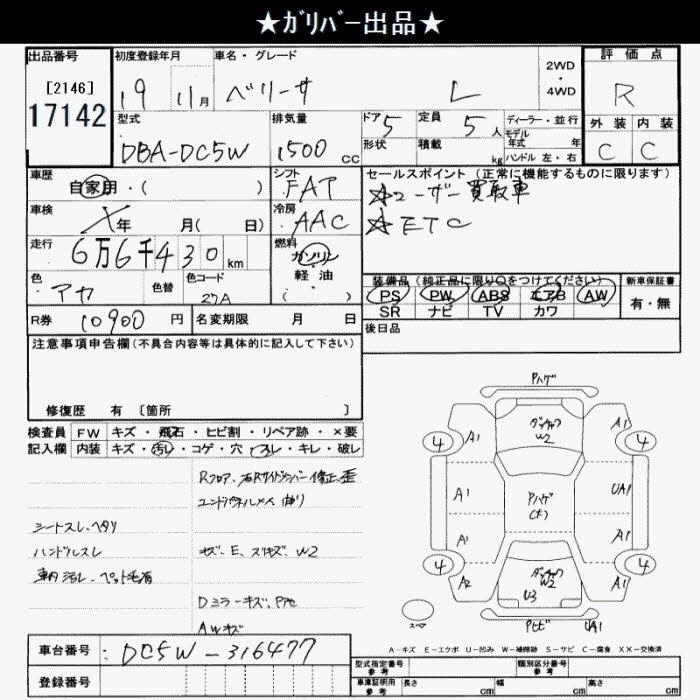 ★ｶﾞﾘﾊﾞｰ出品★
出品番号 初度登録年月 車名・グレード 2WD・4WD 評価点
[2146] 19 11月 ベリーサ L R
17142
型式 排気量 ドア 5 定員 5人 ディーラー・並行 外装 内装
DBA-DC5W 1500cc 形状 積載 kg モデル年式 年 C C
ハンドル 左・右
車歴 シフト セールスポイント (正常に機能するものに限ります)
自家用・( ) FAT ☆ユーザー買取車
車検 X年 月( 日) 冷房 AAC ☆ETC
走行 6万6千430km 燃料 ガソリン
軽油
( )
色 色替 色コード 装備品(純正品に限り○をつけてください) 新車保証書
アカ 27A PS PW ABS エアB AW 有・無
SR ナビ TV カワ
R券 10900円 名変期限 月 日 後日品
注意事項申告欄(不具合内容等は具体的に記入して下さい)
修復歴 有 [箇所 ]
検査員 FW キズ・飛石・ヒビ割・リペア跡・×要
記入欄 内装 キズ・汚レ・コゲ・穴・スレ・キレ・破レ
Rフロア、右Rサイドメンバー修正、歪
エンドパネルメクレ曲り
シートスレ、ヘタリ
ハンドルスレ キズ・E、スリキズ、W2
車内汚レ・ペット毛有
Dミラーキズ、
AWキズ
車台番号: DC5W-316477
登録番号
Pハゲ
A1 W2 A1
4 4
A1 Pハゲ UA1
A1 A1
4 4
A2 W2 A1
U3
スペア UA1
A-キズ E-エクボ U-凹み W-補修跡 S-サビ C-腐食 XX-交換済
型式指定番号 参考 類別区分番号 参考
車庫証明用 参考 長さ cm 幅 cm 高さ cm